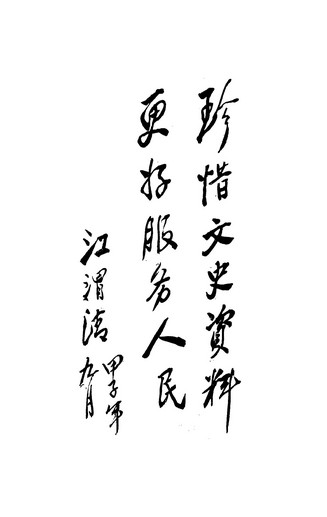 珍惜文史資料
更好服务人民
江渭清
甲子年
九月